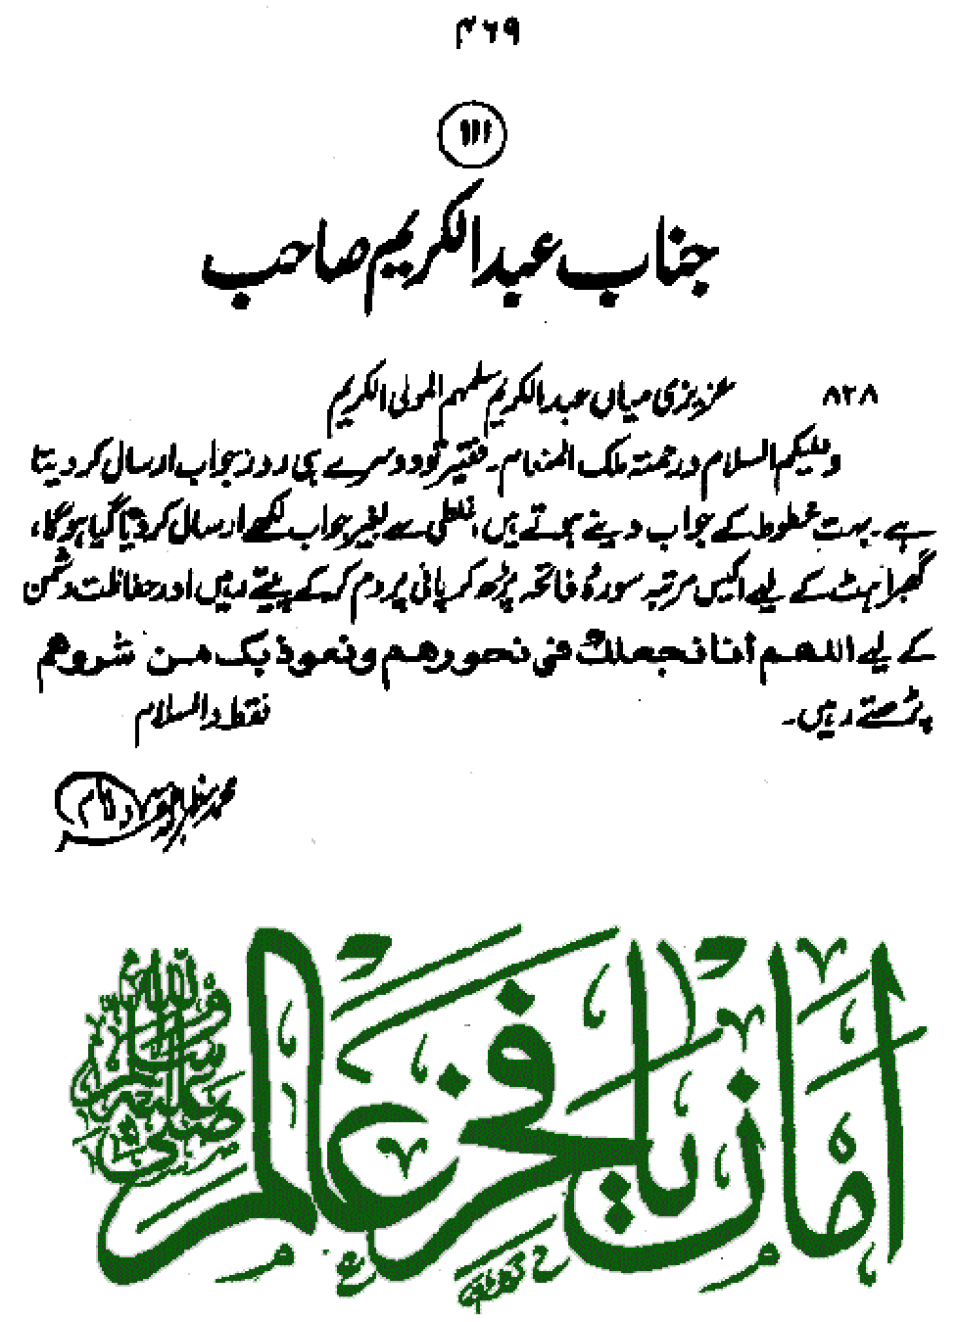 ۴۶۹
۱۱۱
جناب عبدالکریم صاحب
۸۲۸ عزیزی میاں عبدالکریم سلمہم المولی الکریم
وعلیکم السلام ورحمتہ ملک المنعام۔ فقیر تو دوسرے ہی روز جواب ارسال کر دیتا
ہے۔ بہت خطوط کے جواب دینے ہوتے ہیں، غلطی سے بغیر جواب لکھے ارسال کر دیا گیا ہوگا،
گھبراہٹ کے لیے اکیس مرتبہ سورۂ فاتحہ پڑھ کر پانی پر دم کر کے پیتے رہیں اور حفاظت دشمن
کے لیے اللہم أنا نجعلك فی نحورهم ونعوذ بک من شروهم
پڑھتے رہیں۔ فقط والسلام
محمد مظہر اللہ
امان یا فخر عالم صلی اللہ علیہ وسلم